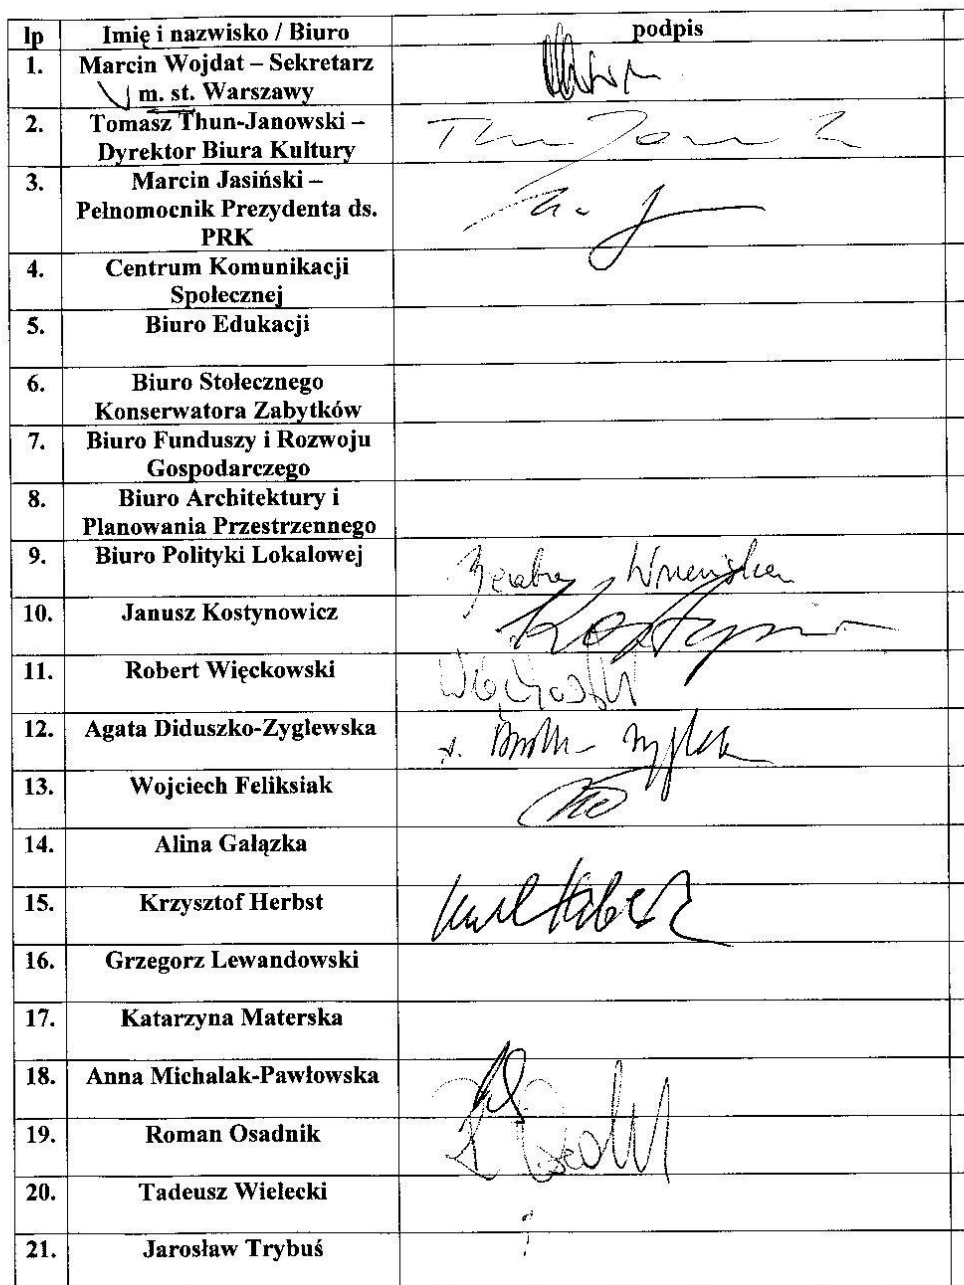 lp Imię i nazwisko / Biuro podpis
1. Marcin Wojdat – Sekretarz
m. st. Warszawy
2. Tomasz Thun-Janowski –
Dyrektor Biura Kultury
3. Marcin Jasiński –
Pełnomocnik Prezydenta ds.
PRK
4. Centrum Komunikacji
Społecznej
5. Biuro Edukacji
6. Biuro Stołecznego
Konserwatora Zabytków
7. Biuro Funduszy i Rozwoju
Gospodarczego
8. Biuro Architektury i
Planowania Przestrzennego
9. Biuro Polityki Lokalowej
10. Janusz Kostynowicz
11. Robert Więckowski
12. Agata Diduszko-Zyglewska
13. Wojciech Feliksiak
14. Alina Gałązka
15. Krzysztof Herbst
16. Grzegorz Lewandowski
17. Katarzyna Materska
18. Anna Michalak-Pawłowska
19. Roman Osadnik
20. Tadeusz Wielecki
21. Jarosław Trybuś